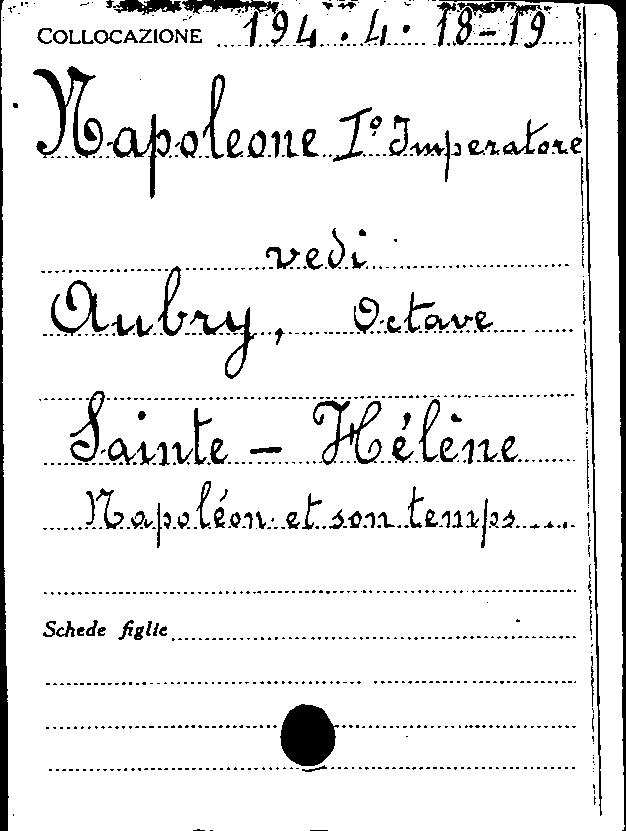 COLLOCAZIONE 194.4.18-19
Napoleone I° Imperatore
vedi
Aubry, Octave
Sainte - Hélène
Napoléon et son temps ....
Schede figlie